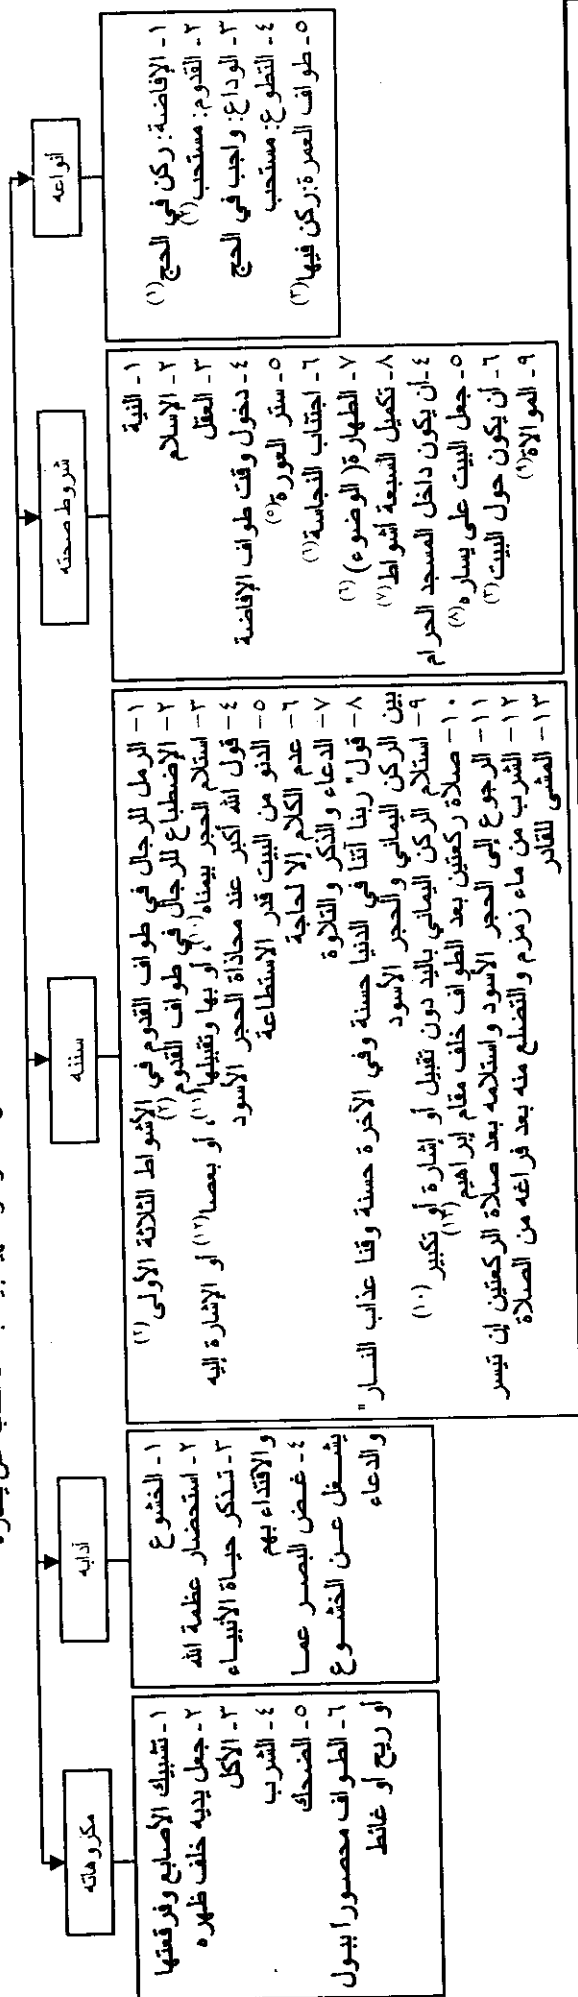 أنواعه
١- الإفاضة: ركن في الحج(١)
٢- القدوم: مستحب(٢)
٣- الوداع: واجب في الحج
٤- التطوع: مستحب
٥- طواف العمرة: ركن فيها(٣)
شروط صحته
١- النية
٢- الإسلام
٣- العقل
٤- دخول وقت طواف الإفاضة
٥- ستر العورة(٥)
٦- اجتناب النجاسة(٦)
٧- الطهارة (الوضوء)(٦)
٨- تكميل السبعة أشواط(٧)
٤- أن يكون داخل المسجد الحرام
٥- جعل البيت على يساره(٨)
٦- أن يكون حول البيت(٣)
٩- الموالاة(٩)
سننه
١- الرمل للرجال في طواف القدوم في الأشواط الثلاثة الأولى(٢)
٢- الإضطباع للرجال في طواف القدوم(٢)
٣- استلام الحجر بيمناه(١٠)، أو بها وتقبيلها(١١)، أو بعصا(١٢) أو الإشارة إليه
٤- قول الله أكبر عند محاذاة الحجر الأسود
٥- الدنو من البيت قدر الاستطاعة
٦- عدم الكلام إلا لحاجة
٧- الدعاء والذكر والتلاوة
٨- قول "ربنا آتنا في الدنيا حسنة وفي الآخرة حسنة وقنا عذاب النار"
بين الركن اليماني والحجر الأسود
٩- استلام الركن اليماني باليد دون تقبيل أو إشارة أو تكبير(١٠)
١٠- صلاة ركعتين بعد الطواف خلف مقام إبراهيم(١٣)
١١- الرجوع إلى الحجر الأسود واستلامه بعد صلاة الركعتين إن تيسر
١٢- الشرب من ماء زمزم والتضلع منه بعد فراغه من الصلاة
١٣- المشي للقادر
آدابه
١- الخشوع
٢- استحضار عظمة الله
٣- تذكر حياة الأنبياء
والاقتداء بهم
٤- غض البصر عما
يشغل عن الخشوع
والدعاء
مكروهاته
١- تشبيك الأصابع وفرقعتها
٢- جعل يديه خلف ظهره
٣- الأكل
٤- الشرب
٥- الضحك
٦- الطواف محصورا ببول
أو ريح أو غائط